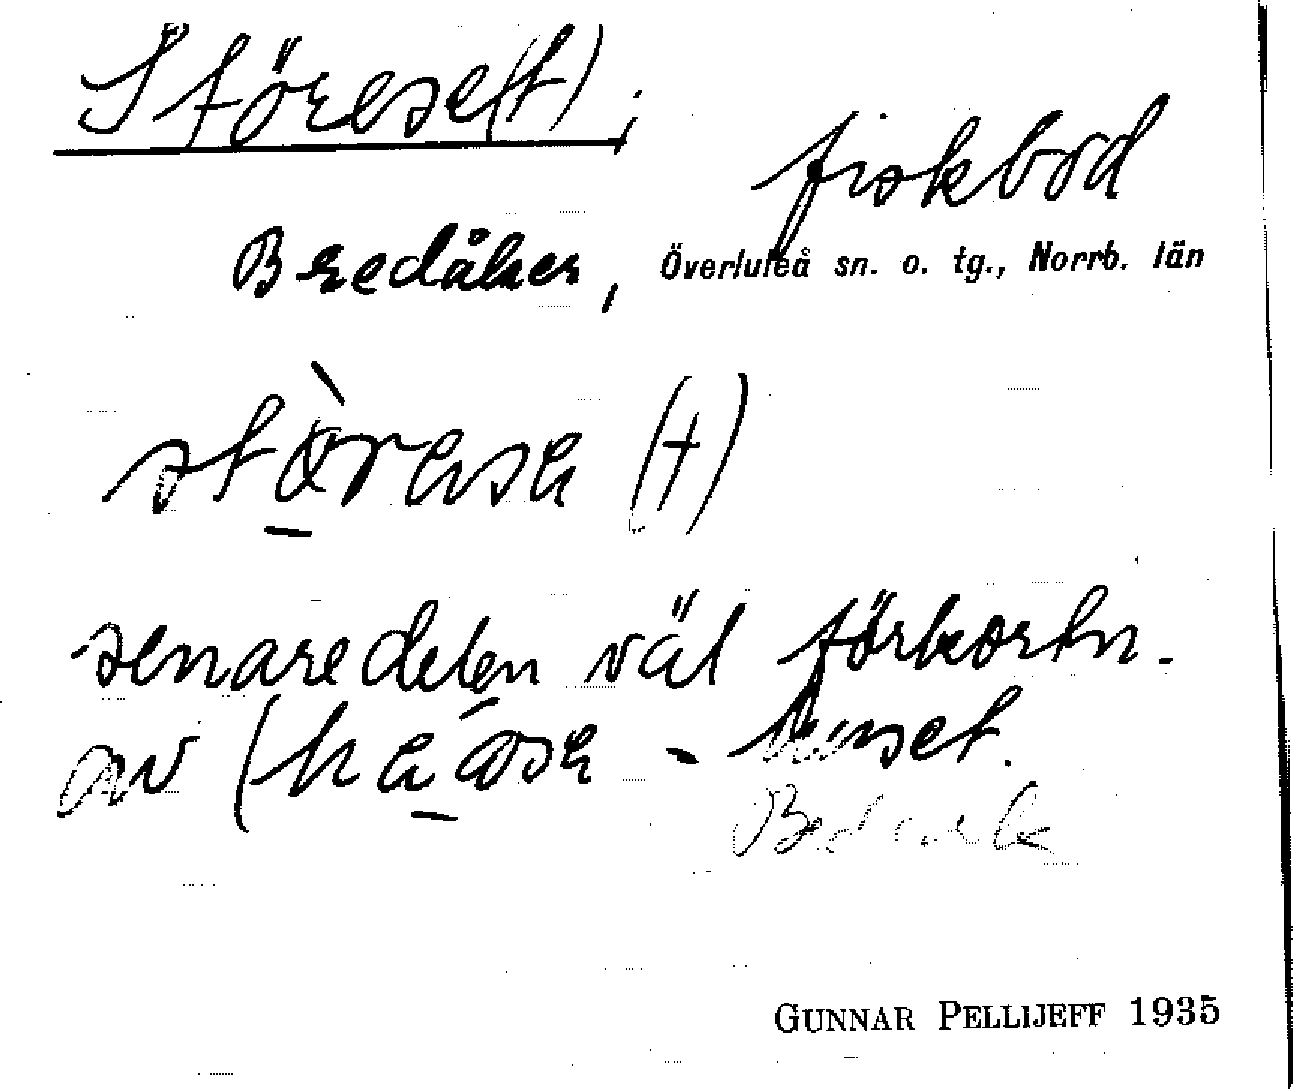 Störese(t),
fiskbod
Bredåker, Överluleå sn. o. tg., Norrb. län
stòrəsə (t)
senare delen väl förkortn.
av (həósə - huset.
GUNNAR PELLIJEFF 1935